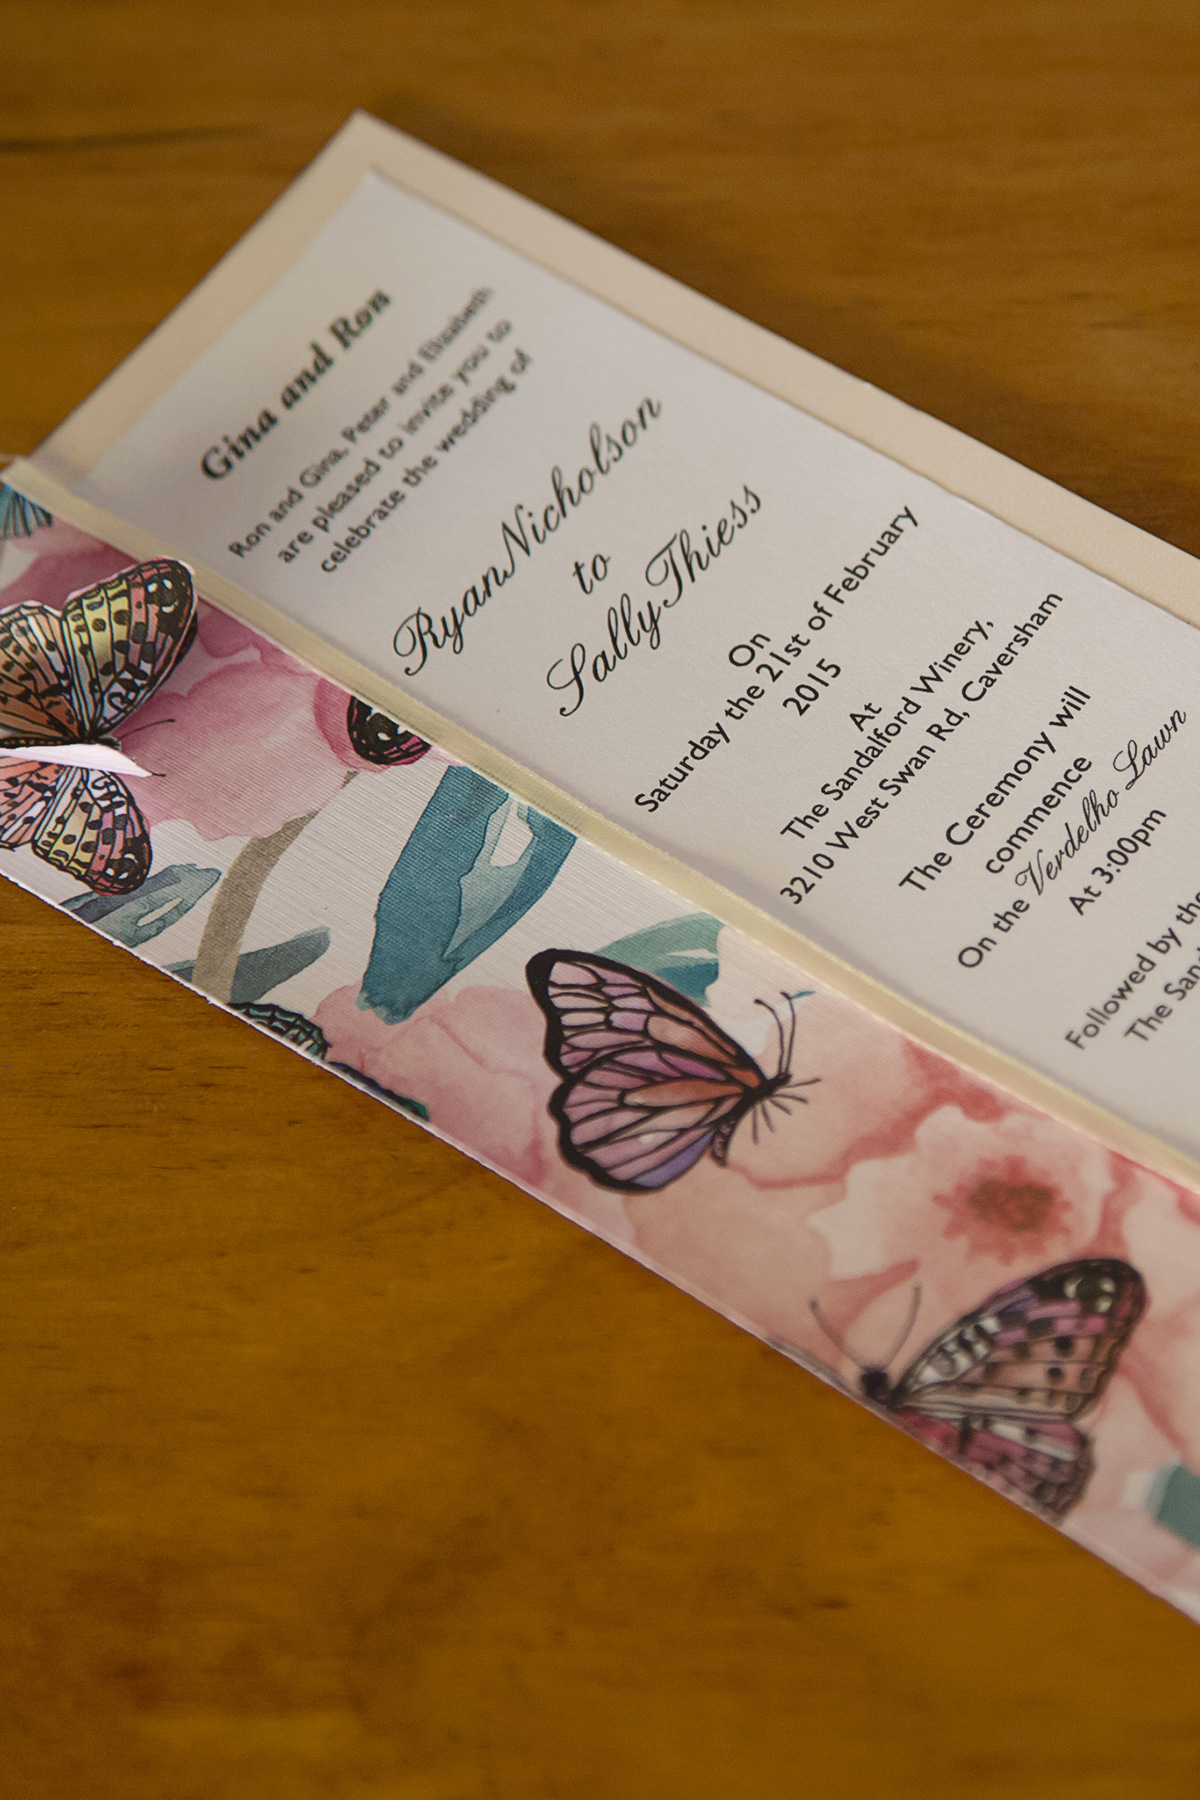 Gina and Ron
Ron and Gina, Peter and Elizabeth
are pleased to invite you to
celebrate the wedding of
Ryan Nicholson
to
Sally Thiess
On
Saturday the 21st of February
2015
At
The Sandalford Winery,
3210 West Swan Rd, Caversham
The Ceremony will
commence
On the Verdelho Lawn
At 3:00pm
Followed by the
The